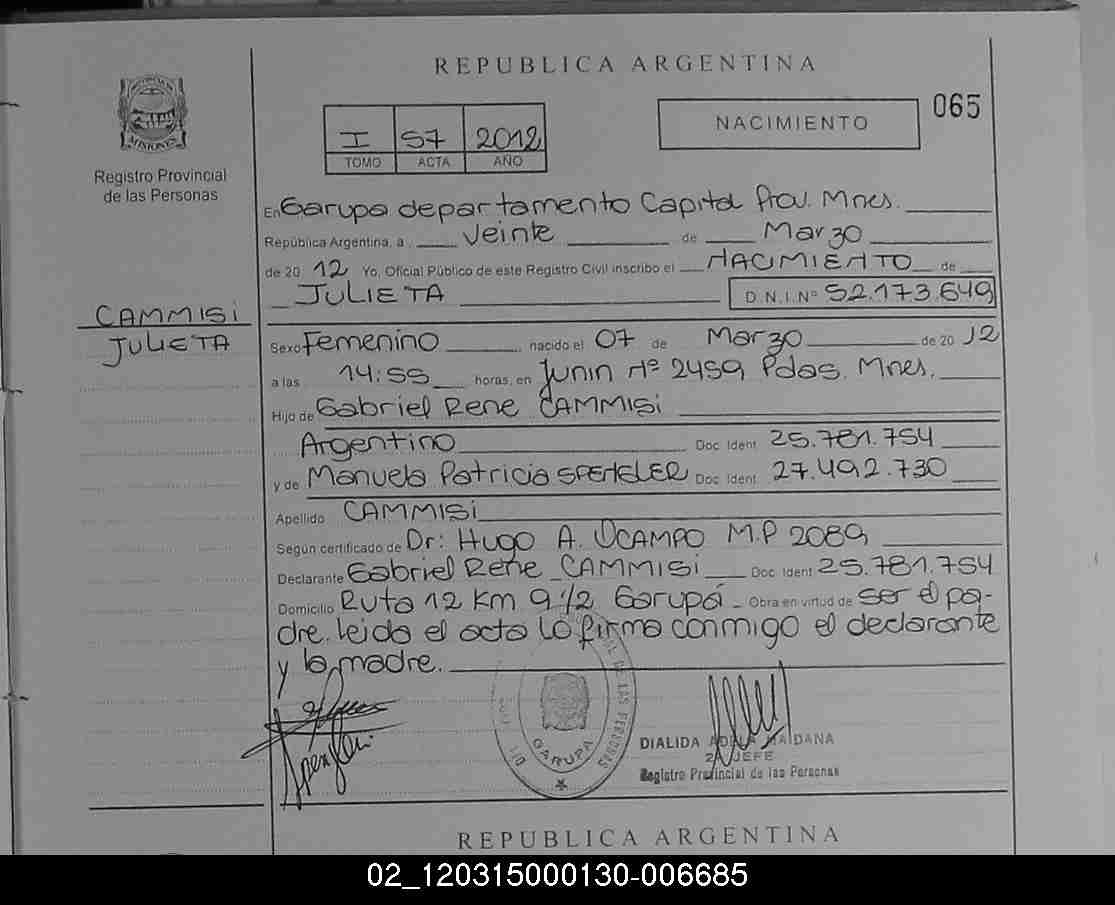 REPUBLICA ARGENTINA
MISIONES
Registro Provincial
de las Personas
I 57 2012
TOMO ACTA AÑO
NACIMIENTO 065
En Garupa departamento Capital Prov. Mnes.
República Argentina, a veinte de Marzo
de 20 12 Yo, Oficial Público de este Registro Civil inscribo el NACIMIENTO de
JULIETA D.N.I.Nº 52.173.649
CAMMISi
JULIETA
Sexo Femenino nacido el 07 de Marzo de 20 12
a las 14:55 horas, en Junin Nº 2459 Pdas. Mnes.
Hijo de Gabriel Rene CAMMISi
Argentino Doc Ident 25.781.754
y de Manuela Patricia SPENGLER Doc Ident 27.492.730
Apellido CAMMISi
Según certificado de Dr: Hugo A. OCAMPO M.P 2089
Declarante Gabriel Rene CAMMISi Doc Ident 25.781.754
Domicilio Ruta 12 Km 9 1/2 Garupá Obra en virtud de ser el pa-
dre. leida el acta lo firma conmigo el declarante
y la madre.
GARUPA
DIALIDA ADELA MAIDANA
2º JEFE
Registro Provincial de las Personas
REPUBLICA ARGENTINA
02_120315000130-006685